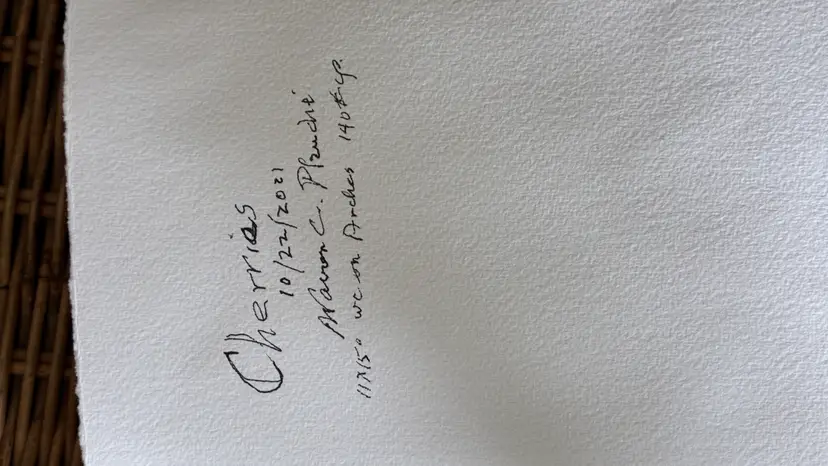 Cherries
10/22/2021
C. Plauché
11x15" wc on Arches 140# cp.